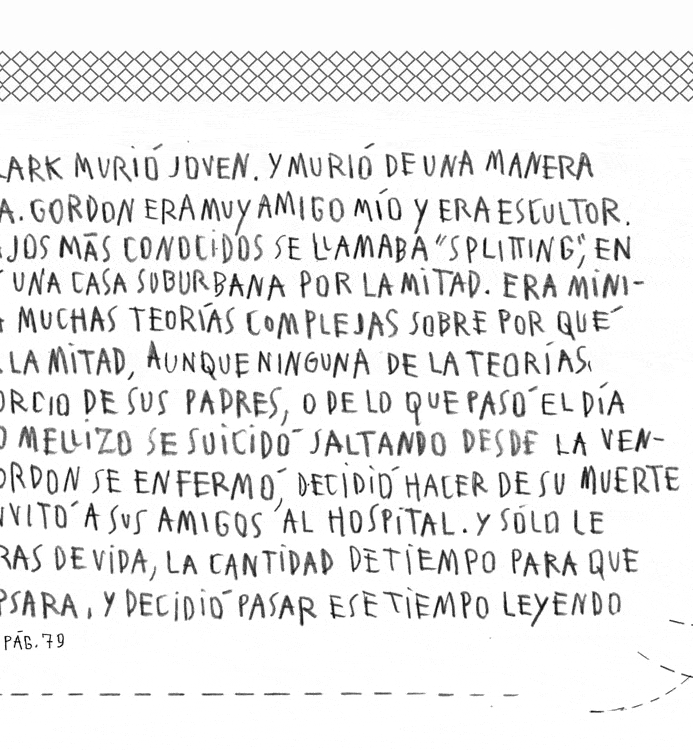 LARK MURIÓ JOVEN. Y MURIÓ DE UNA MANERA
A. GORDON ERA MUY AMIGO MÍO Y ERA ESCULTOR.
AJOS MÁS CONOCIDOS SE LLAMABA "SPLITTING", EN
UNA CASA SUBURBANA POR LA MITAD. ERA MINI-
MUCHAS TEORÍAS COMPLEJAS SOBRE POR QUÉ
LA MITAD, AUNQUE NINGUNA DE LA TEORÍAS
ORCIO DE SUS PADRES, O DE LO QUE PASÓ EL DÍA
O MELLIZO SE SUICIDÓ SALTANDO DESDE LA VEN-
ORDON SE ENFERMÓ, DECIDIÓ HACER DE SU MUERTE
NVITÓ A SUS AMIGOS AL HOSPITAL. Y SÓLO LE
RAS DE VIDA, LA CANTIDAD DE TIEMPO PARA QUE
PSARA, Y DECIDIÓ PASAR ESE TIEMPO LEYENDO
PÁG. 79